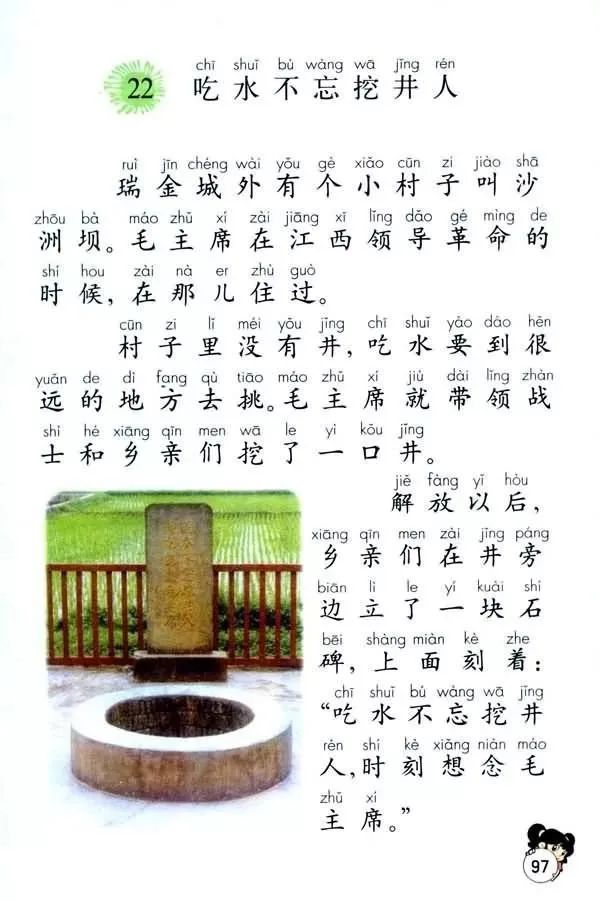 chī shuǐ bù wàng wā jǐng rén
22 吃水不忘挖井人
ruì jīn chéng wài yǒu gè xiǎo cūn zi jiào shā
瑞金城外有个小村子叫沙
zhōu bà máo zhǔ xí zài jiāng xī lǐng dǎo gé mìng de
洲坝。毛主席在江西领导革命的
shí hou zài nà er zhù guò
时候，在那儿住过。
cūn zi lǐ méi yǒu jǐng chī shuǐ yào dào hěn
村子里没有井，吃水要到很
yuǎn de dì fang qù tiāo máo zhǔ xí jiù dài lǐng zhàn
远的地方去挑。毛主席就带领战
shì hé xiāng qīn men wā le yì kǒu jǐng
士和乡亲们挖了一口井。
jiě fàng yǐ hòu
解放以后，
xiāng qīn men zài jǐng páng
乡亲们在井旁
biān lì le yí kuài shí
边立了一块石
bēi shàng miàn kè zhe
碑，上面刻着：
chī shuǐ bù wàng wā jǐng
“吃水不忘挖井
rén shí kè xiǎng niàn máo
人，时刻想念毛
zhǔ xí
主席。”
97